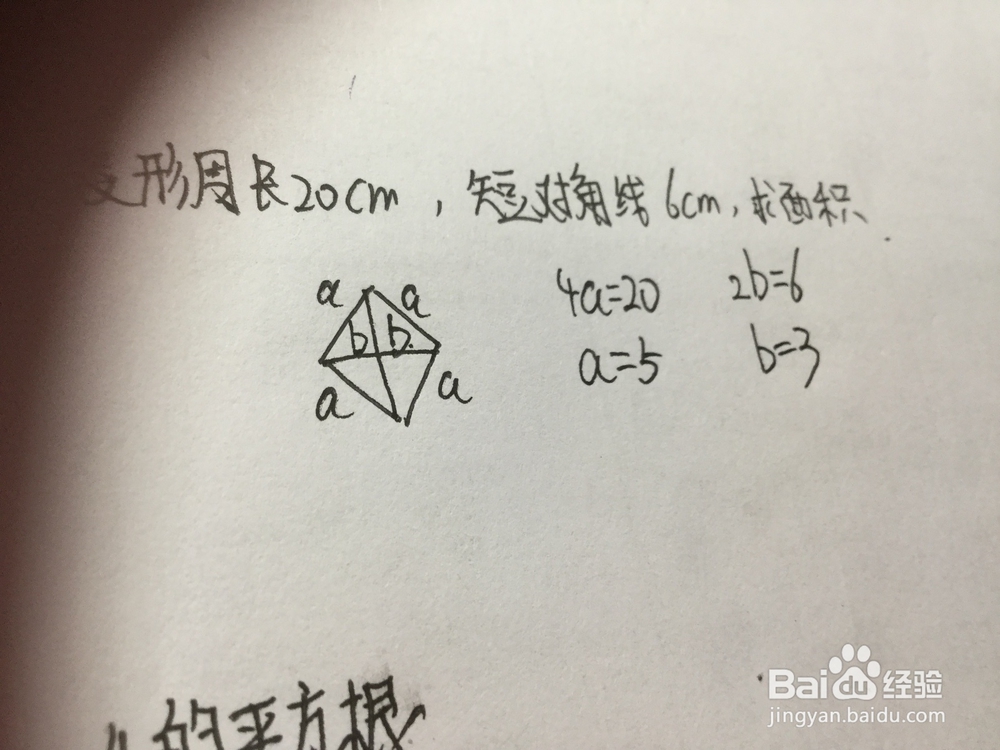 形周长20cm，短对角线6cm，求面积.
a a
4a=20 2b=6
b b
a=5 b=3
a a
的平方根
Baidu经验
jingyan.baidu.com